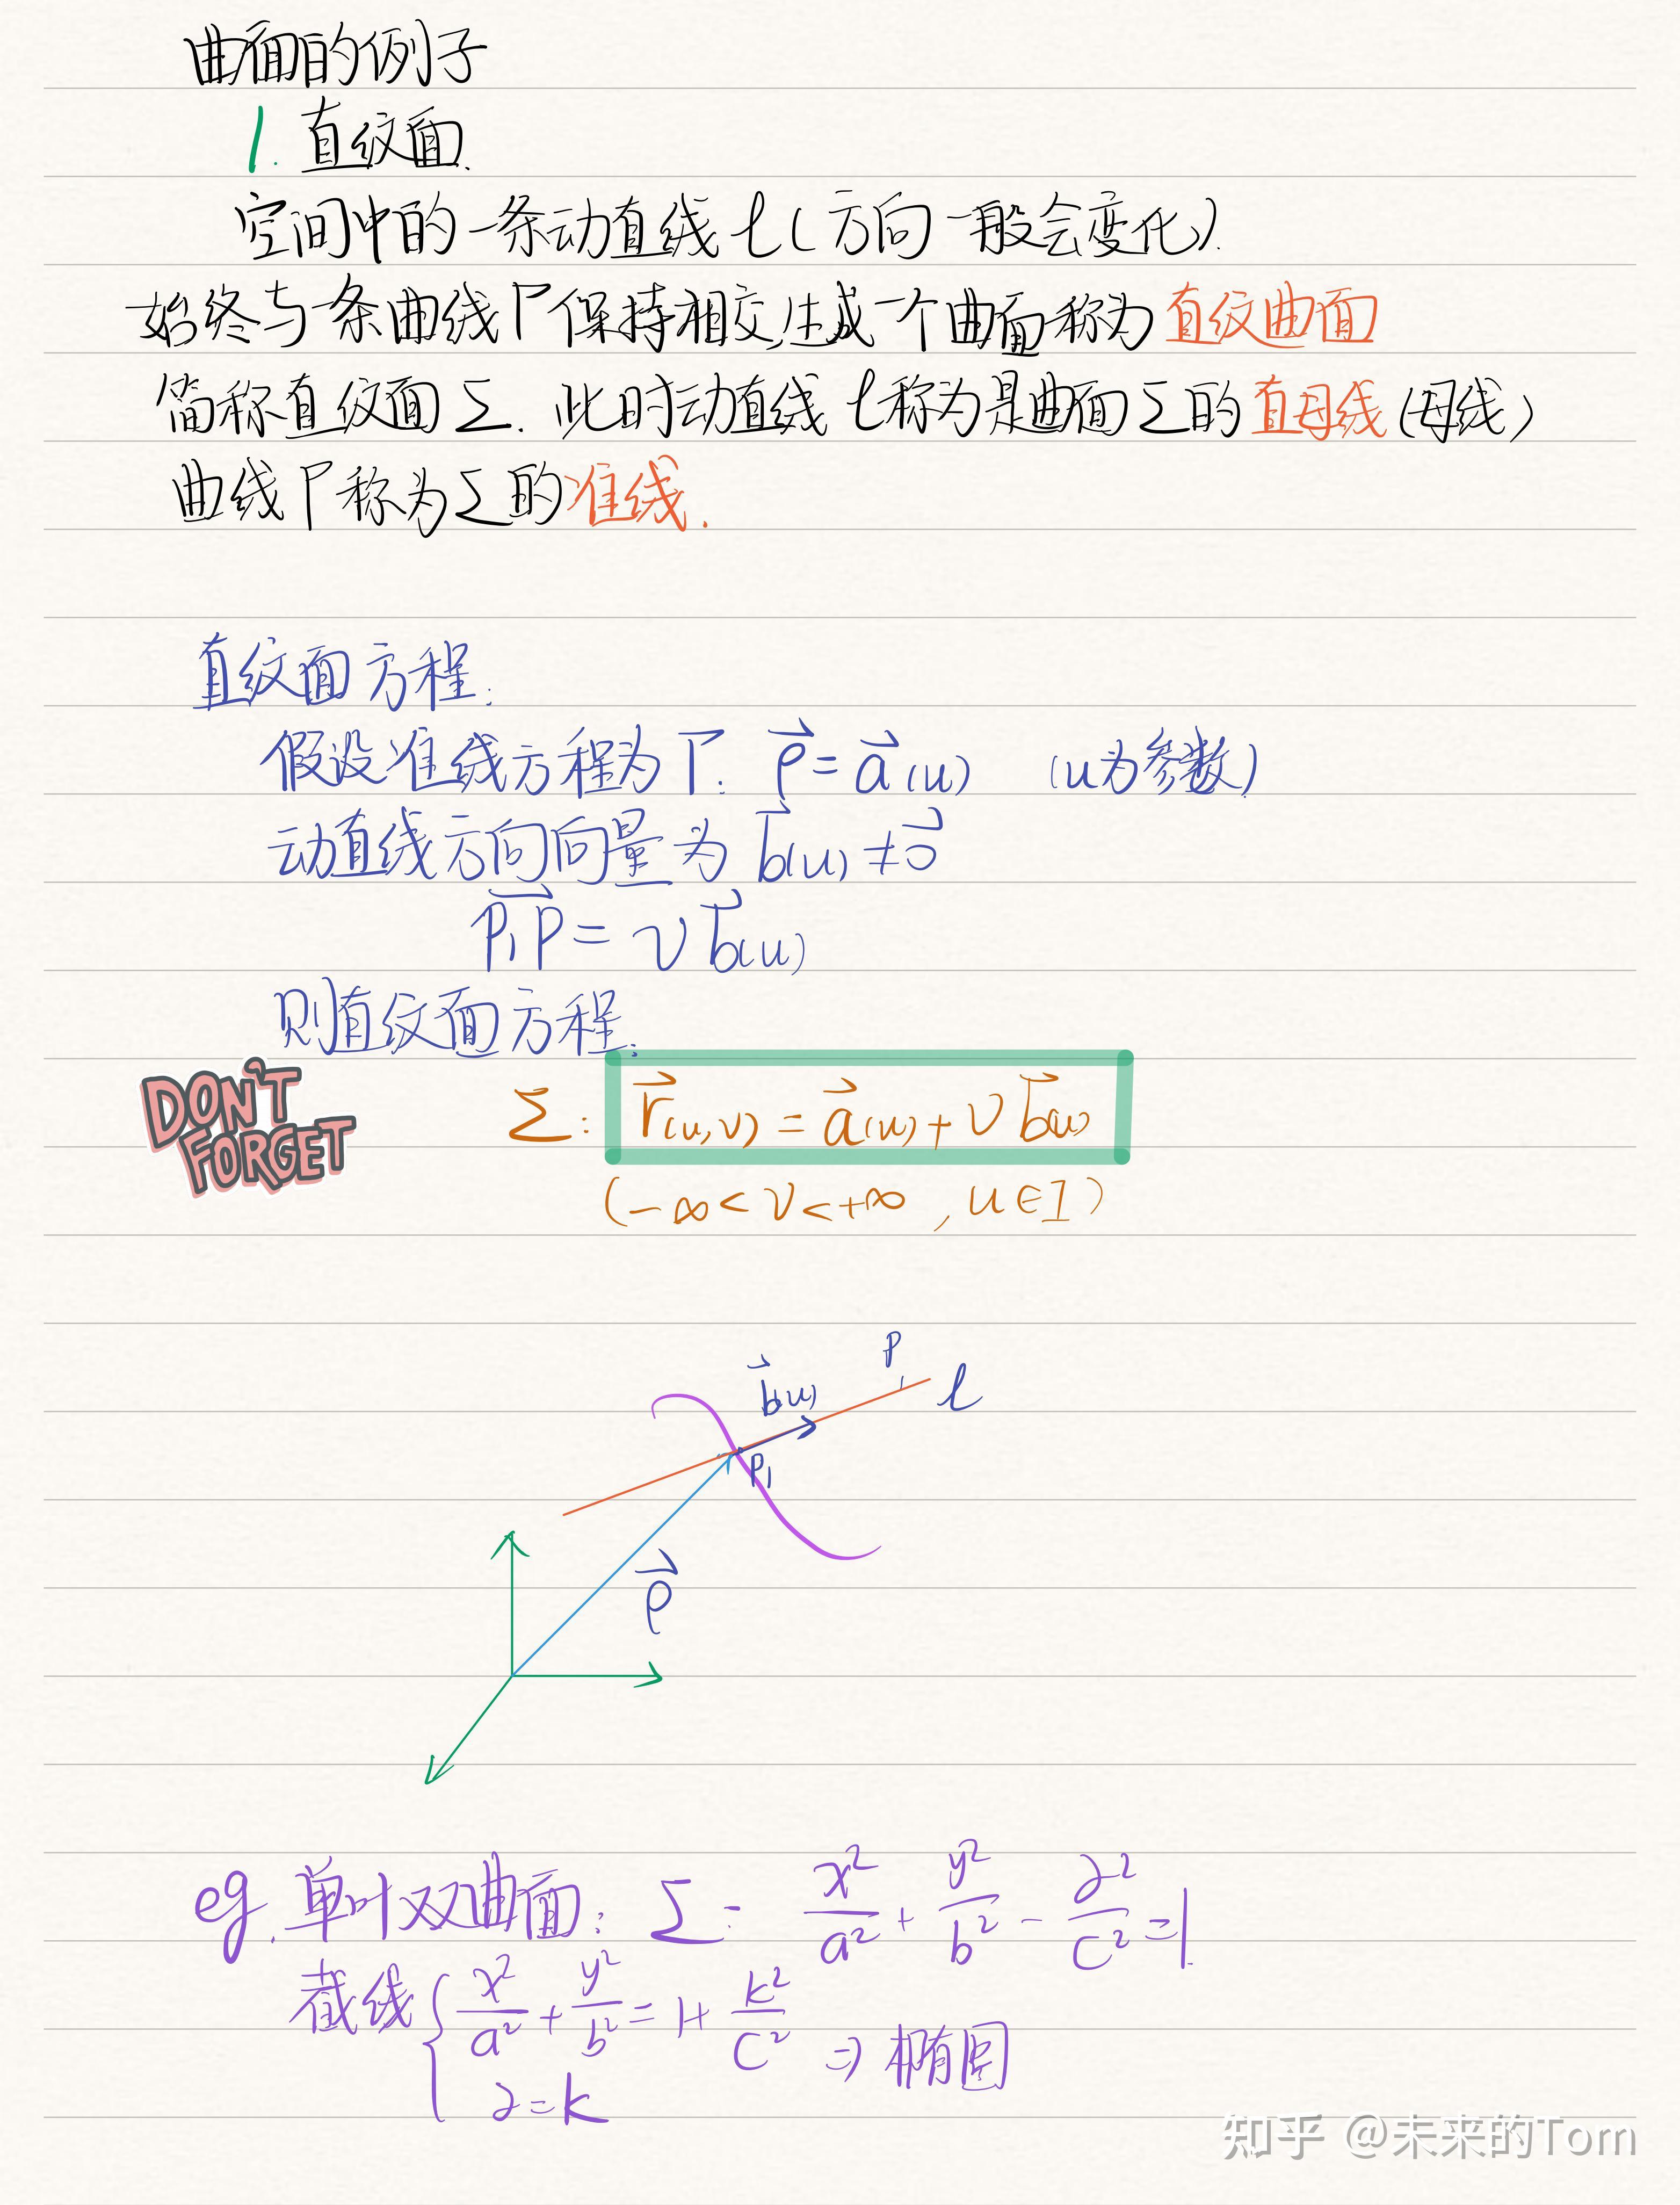 曲面的例子
1. 直纹面.
空间中的一条动直线 l (方向一般会变化).
始终与一条曲线 Γ 保持相交,生成一个曲面称为直纹曲面
简称直纹面 Σ. 此时动直线 l 称为是曲面 Σ 的直母线 (母线)
曲线 Γ 称为 Σ 的准线.
直纹面方程:
假设准线方程为 Γ: ρ⃗ = a⃗(u) (u为参数)
动直线方向向量为 b⃗(u) ≠ 0⃗
P₁P⃗ = v b⃗(u)
则直纹面方程:
DON'T
FORGET
Σ: r⃗(u,v) = a⃗(u) + v b⃗(u)
(-∞ < v < +∞, u ∈ I)
P
b⃗(u)
l
P₁
ρ⃗
eg. 单叶双曲面: Σ: x²/a² + y²/b² - z²/c² = 1.
截线 { x²/a² + y²/b² = 1 + k²/c² ⇒ 椭圆
z = k
知乎 @未来的Tom